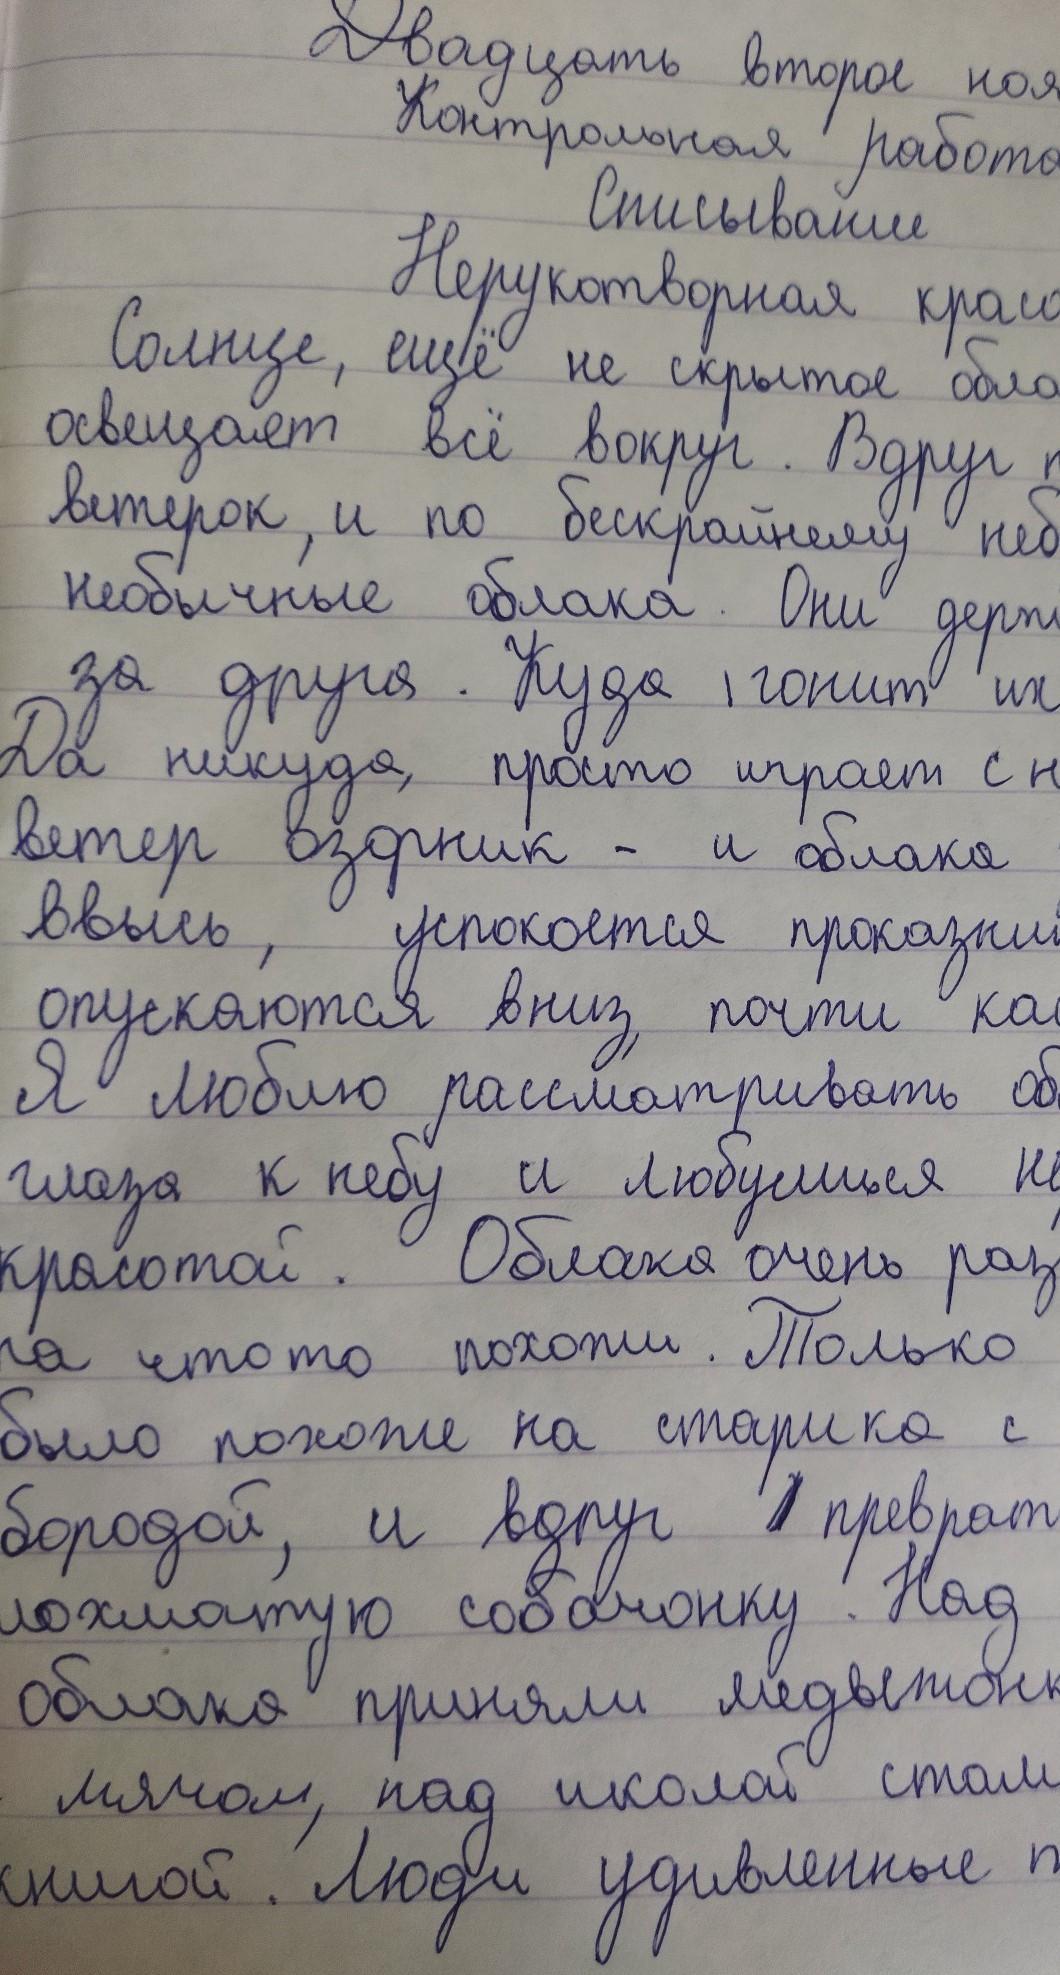 Двадцать второе ноя
Контрольная работа
Списывание
Нерукотворная красо
Солнце, ещё не скрытое обла
освещает всё вокруг. Вдруг п
ветерок, и по бескрайнему неб
необычные облака. Они держ
за друга. Куда гонит их
Да никуда, просто играет с н
ветер озорник - и облака
ввысь, успокоется проказни
опускаются вниз, почти ка
Я люблю рассматривать об
глаза к небу и любуешься не
красотой. Облака очень раз
на что то похожи. Только
было похоже на старика с
бородой, и вдруг преврат
лохматую собачонку. Над
облака приняли медвежонк
мячом, над школой стали
книгой. Люди удивленные п